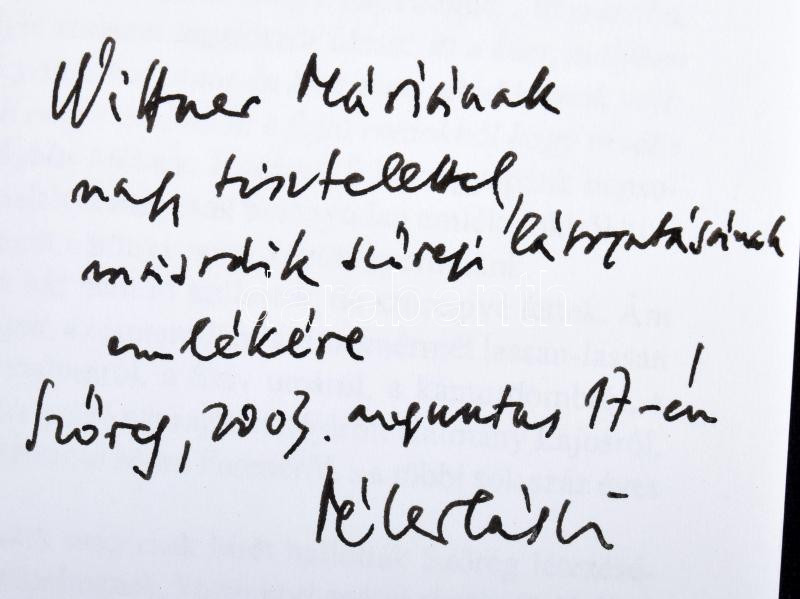 Wittner Máriának
nagy tisztelettel,
második szőregi látogatásának
emlékére
Szőreg, 2003. augusztus 17-én
Péter László